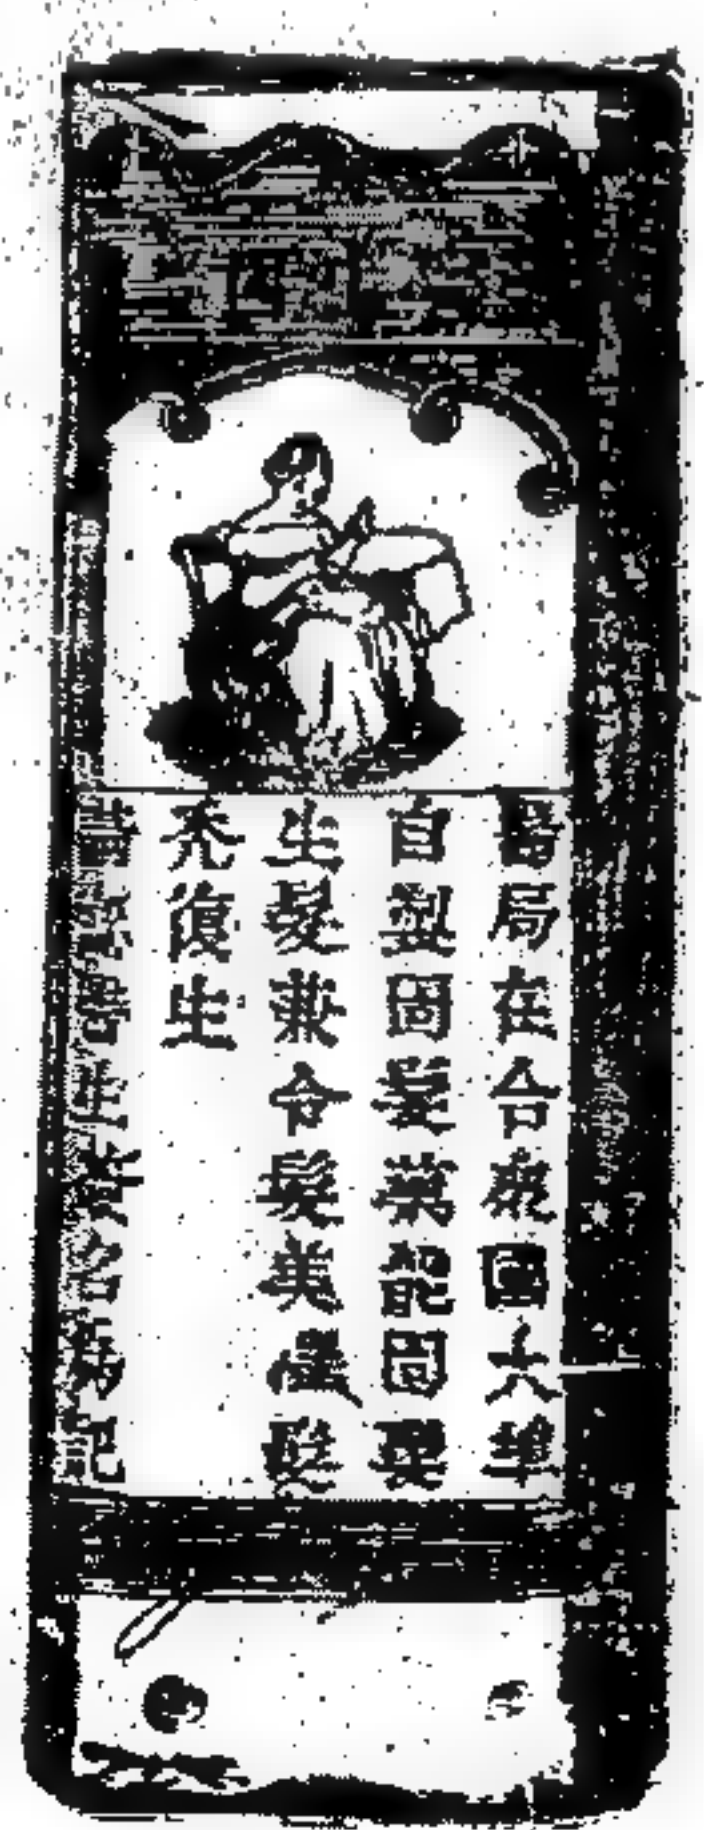 醫局在合衆國大埠
自製固髮藥能固髮
生髮兼令髮美僅髮
禿復生
請認醫生簽名為記